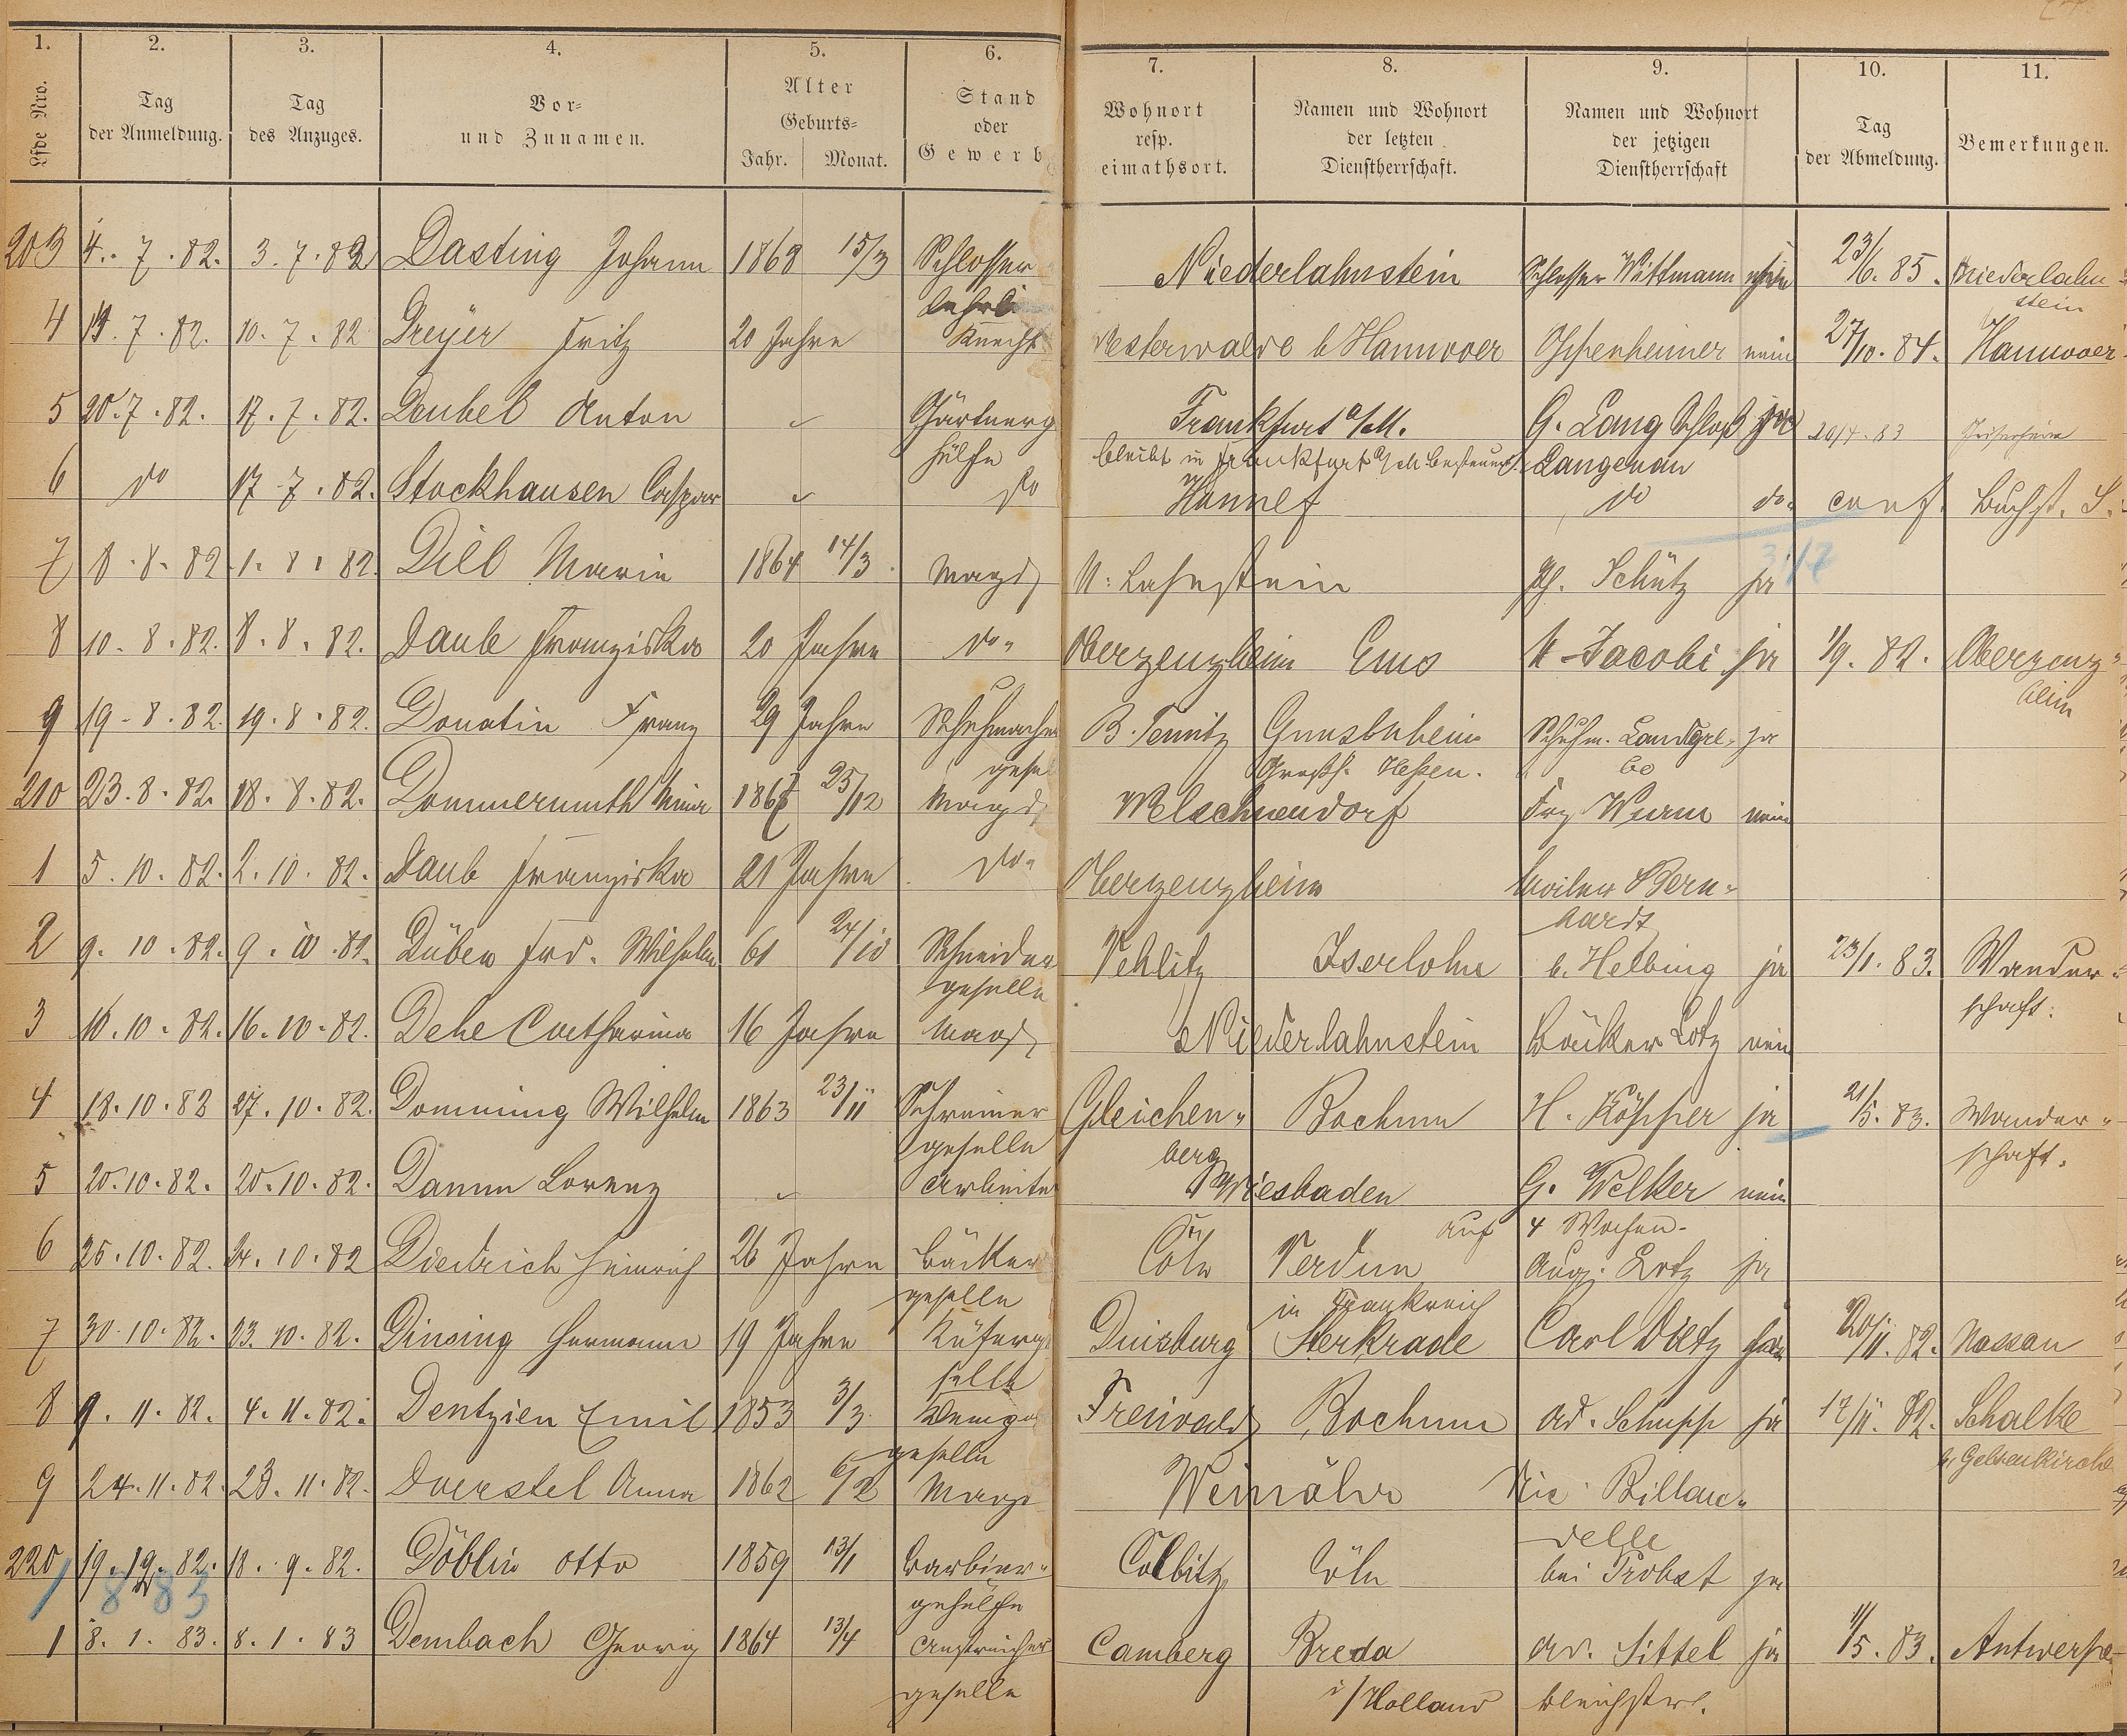 1. 2. 3. 4. 5. 6. 7. 8. 9. 10. 11.
Lfde Nro. Tag der Anmeldung. Tag des Anzuges. Vor- und Zunamen. Alter Geburts- Jahr. Monat. Stand oder Gewerb Wohnort resp. eimathsort. Namen und Wohnort der letzten Dienstherrschaft. Namen und Wohnort der jetzigen Dienstherrschaft Tag der Abmeldung. Bemerkungen.
203 4. 7. 82. 3. 7. 82 Dasting Johann 1868 15/3 Schlosser Niederlahnstein Schlosser Wittmann 23/6. 85. Niederlahn
stein
4 7. 82. 10. 7. 82 Dreyer Fritz 20 Jahre Knecht Westerwalde b Hannover Oppenheimer nein 27/10. 84. Hannover
5 20. 7. 82. 17. 7. 82. Deubel Anton Gärtnerg Frankfurt a/M. G. Lang Schloß 20/4. 83
hülfe bleibt in Frankfurt a/M besteuert. Langenau
6 do 17. 7. 82. Stockhausen Caspar do Honnef do do. conf. Buchst. S.
7 8. 8. 82 1. 8. 82. Dill Maria 1864 14/3. Magd N. Lahnstein Ph. Schütz ja
8 10. 8. 82. 8. 8. 82. Daub Franziska 20 Jahre do. Oberzeuzheim Ems Jacobi ja 1/9. 82. Oberzeuz
heim
9 19. 8. 82. 19. 8. 82. Donatin Franz 29 Jahre Schuhmacher B. Schuhm. Landgre- ja
gesel Großh. Hessen. be
210 23. 8. 82. 18. 8. 82. Dommermuth 1867 25/12 Magd Welschneudorf Frz Wurm nein
1 5. 10. 82. 2. 10. 82. Daub Franziska 21 Jahre do. Oberzeuzheim Bern-
hardt
2 9. 10. 82. 9. 10. 82. Düben Frd. Wilhelm 61 24/10 Schneider Vehlitz Iserlohn b. Helbing ja 23/1. 83. Wander-
geselle schaft.
3 16. 10. 82. 16. 10. 82. Dehe Catharina 16 Jahre Magd Niederlahnstein Bäcker Lotz nein
4 18. 10. 82 27. 10. 82. Domning Wilhelm 1863 23/11 Schreiner Gleichen- Bochum H. Köpper ja 21/5. 83. Wander-
geselle berg schaft.
5 20. 10. 82. 20. 10. 82. Damm Lorenz Arbeiter Wiesbaden G. Welker nein
auf 4 Wochen.
6 25. 10. 82. 24. 10. 82 Diedrich Heinrich 26 Jahre Bäcker Cöln Verdun Aug. Lotz ja
geselle in Frankreich
7 30. 10. 82. 23. 10. 82. Dinsing Hermann 19 Jahre Küferge Duisburg Sterkrade Carl Dietz 20/11. 82. Nassau
selle
8 9. 11. 82. 4. 11. 82. Dentzien Emil 1853 3/3 Freiwald Bochum Ad. Schupp ja 17/11. 82. Schalke
geselle b. Gelsenkirche
9 24. 11. 82. 23. 11. 82. Anna 1862 6/2 Magd Weinähr Nic. Billau-
delle
220 19. 12. 82. 18. 9. 82. Döblin Otto 1859 13/1 Barbier- Colbitz Cöln bei Probst ja
8 83 gehülfe
1 8. 1. 83. 8. 1. 83 Dembach Georg 1864 13/4 Anstreicher Camberg Breda Ad. Sittel ja 11/5. 83. Antwerpe
geselle i/Holland Bleichstr.